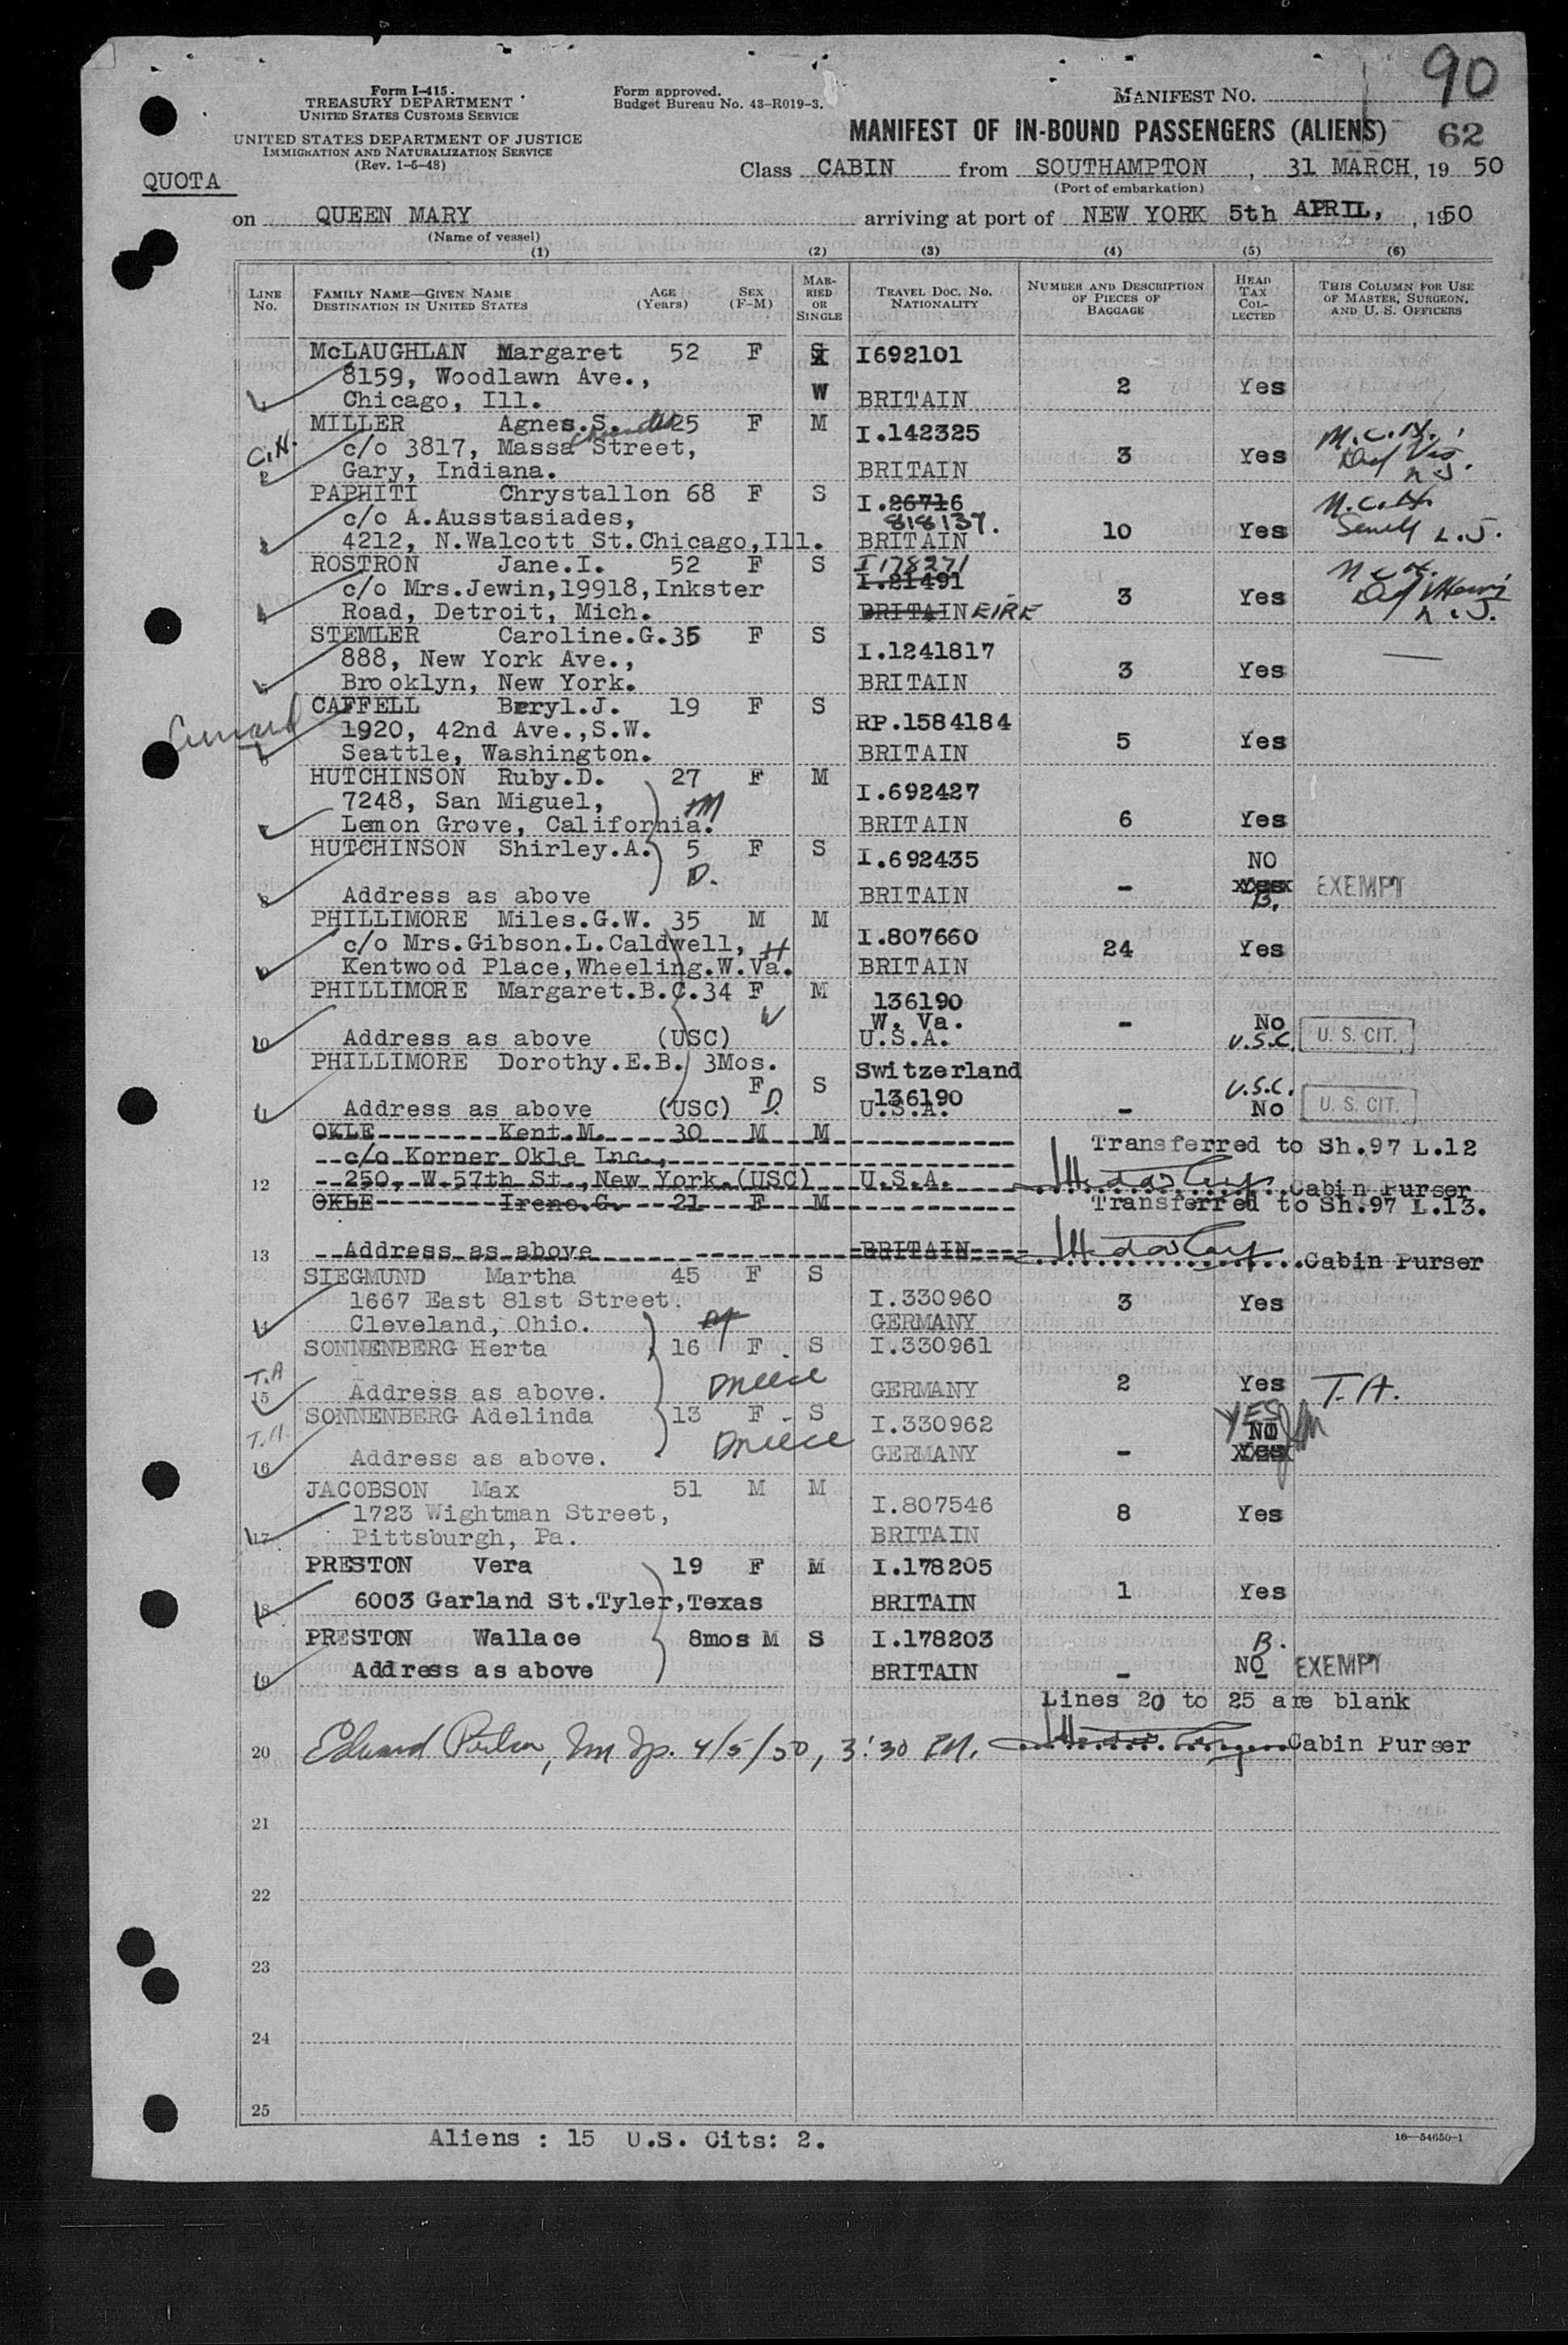 90
Form I-415.
TREASURY DEPARTMENT
UNITED STATES CUSTOMS SERVICE
UNITED STATES DEPARTMENT OF JUSTICE
IMMIGRATION AND NATURALIZATION SERVICE
(Rev. 1-5-48)
Form approved.
Budget Bureau No. 43-R019-3.
MANIFEST NO.
MANIFEST OF IN-BOUND PASSENGERS (ALIENS) 62
QUOTA
Class CABIN from SOUTHAMPTON, 31 MARCH, 19 50
(Port of embarkation)
on QUEEN MARY arriving at port of NEW YORK 5th APRIL, 1950
(Name of vessel)
(1) (2) (3) (4) (5) (6)
LINE No. FAMILY NAME—GIVEN NAME DESTINATION IN UNITED STATES AGE (Years) SEX (F-M) MARRIED OR SINGLE TRAVEL DOC. NO. NATIONALITY NUMBER AND DESCRIPTION OF PIECES OF BAGGAGE HEAD TAX COLLECTED THIS COLUMN FOR USE OF MASTER, SURGEON, AND U. S. OFFICERS
McLAUGHLAN Margaret 52 F S I692101
8159, Woodlawn Ave.,
Chicago, Ill. W BRITAIN 2 Yes
MILLER Agnes.S. 25 F M I.142325
C.H. c/o 3817, Massa Street,
Gary, Indiana. BRITAIN 3 Yes
PAPHITI Chrystallon 68 F S I.26716
c/o A.Ausstasiades, 818137.
4212, N.Walcott St.Chicago,Ill. BRITAIN 10 Yes L.J.
ROSTRON Jane.I. 52 F S I178271
I.21491
c/o Mrs.Jewin,19918,Inkster
Road, Detroit, Mich. BRITAIN EIRE 3 Yes
STEMLER Caroline.G.35 F S I.1241817
888, New York Ave.,
Brooklyn, New York. BRITAIN 3 Yes
CAFFELL Beryl.J. 19 F S RP.1584184
1920, 42nd Ave.,S.W.
Seattle, Washington. BRITAIN 5 Yes
HUTCHINSON Ruby.D. 27 F M I.692427
7248, San Miguel,
Lemon Grove, California. BRITAIN 6 Yes
HUTCHINSON Shirley.A. 5 F S I.692435 NO
D.
8 Address as above BRITAIN - Yes EXEMPT
PHILLIMORE Miles.G.W. 35 M M I.807660
c/o Mrs.Gibson.L.Caldwell, H
Kentwood Place,Wheeling.W.Va. BRITAIN 24 Yes
PHILLIMORE Margaret.B.C.34 F M 136190
W W. Va. - No
10 Address as above (USC) U.S.A. U.S.C. U. S. CIT.
PHILLIMORE Dorothy.E.B. 3Mos. Switzerland
F S 136190 U.S.C.
11 Address as above (USC) D. U.S.A. - No U. S. CIT.
OKLE Kent.M. 30 M M Transferred to Sh.97 L.12
c/o Korner Okle Inc.,
12 250, W.57th St.,New York.(USC) U.S.A. Cabin Purser
OKLE Irene.G. 21 F M Transferred to Sh.97 L.13.
13 Address as above BRITAIN Cabin Purser
SIEGMUND Martha 45 F S I.330960 3 Yes
1667 East 81st Street.
Cleveland, Ohio. GERMANY
SONNENBERG Herta 16 F S I.330961
T.A
15 Address as above. GERMANY 2 Yes T.A.
SONNENBERG Adelinda 13 F S I.330962 YES NO
T.A.
16 Address as above. GERMANY - Yes
JACOBSON Max 51 M M I.807546 8 Yes
1723 Wightman Street,
17 Pittsburgh, Pa. BRITAIN
PRESTON Vera 19 F M I.178205
18 6003 Garland St.Tyler,Texas BRITAIN 1 Yes
PRESTON Wallace 8mos M S I.178203 B.
19 Address as above BRITAIN - NO EXEMPT
Lines 20 to 25 are blank
20 Edward 4/5/50, 3:30 PM. Cabin Purser
21
22
23
24
25
Aliens : 15 U.S. Cits: 2.
16—54650-1